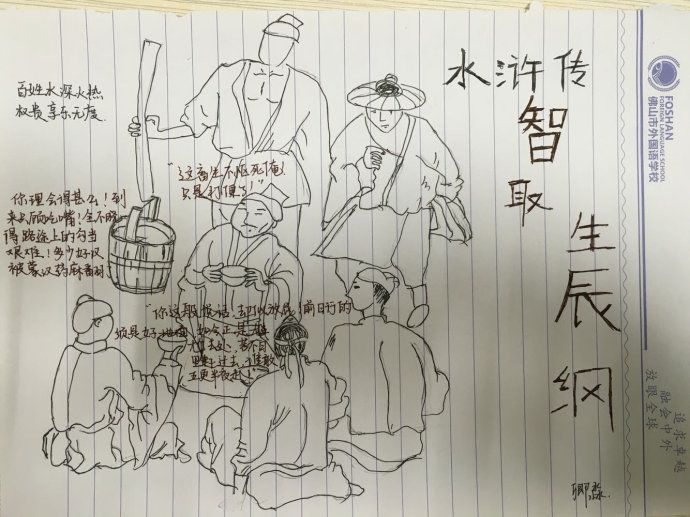 水浒传
智
取
生
辰
纲
FOSHAN
FOREIGN LANGUAGE SCHOOL
佛山市外国语学校
百姓水深火热
权贵享乐无度
"这畜生不怄死俺
只是打便了！"
你理会得甚么！到
来只顾吃嘴！全不晓
得路途上的勾当
艰难！多少好汉
被蒙汉药麻翻了
"你这般说话，却似放屁！前日行的
须是好地面，如今正是
去处，若不日
里赶过去，谁敢
五更半夜走！"
追求卓越
融会中外
放眼全球